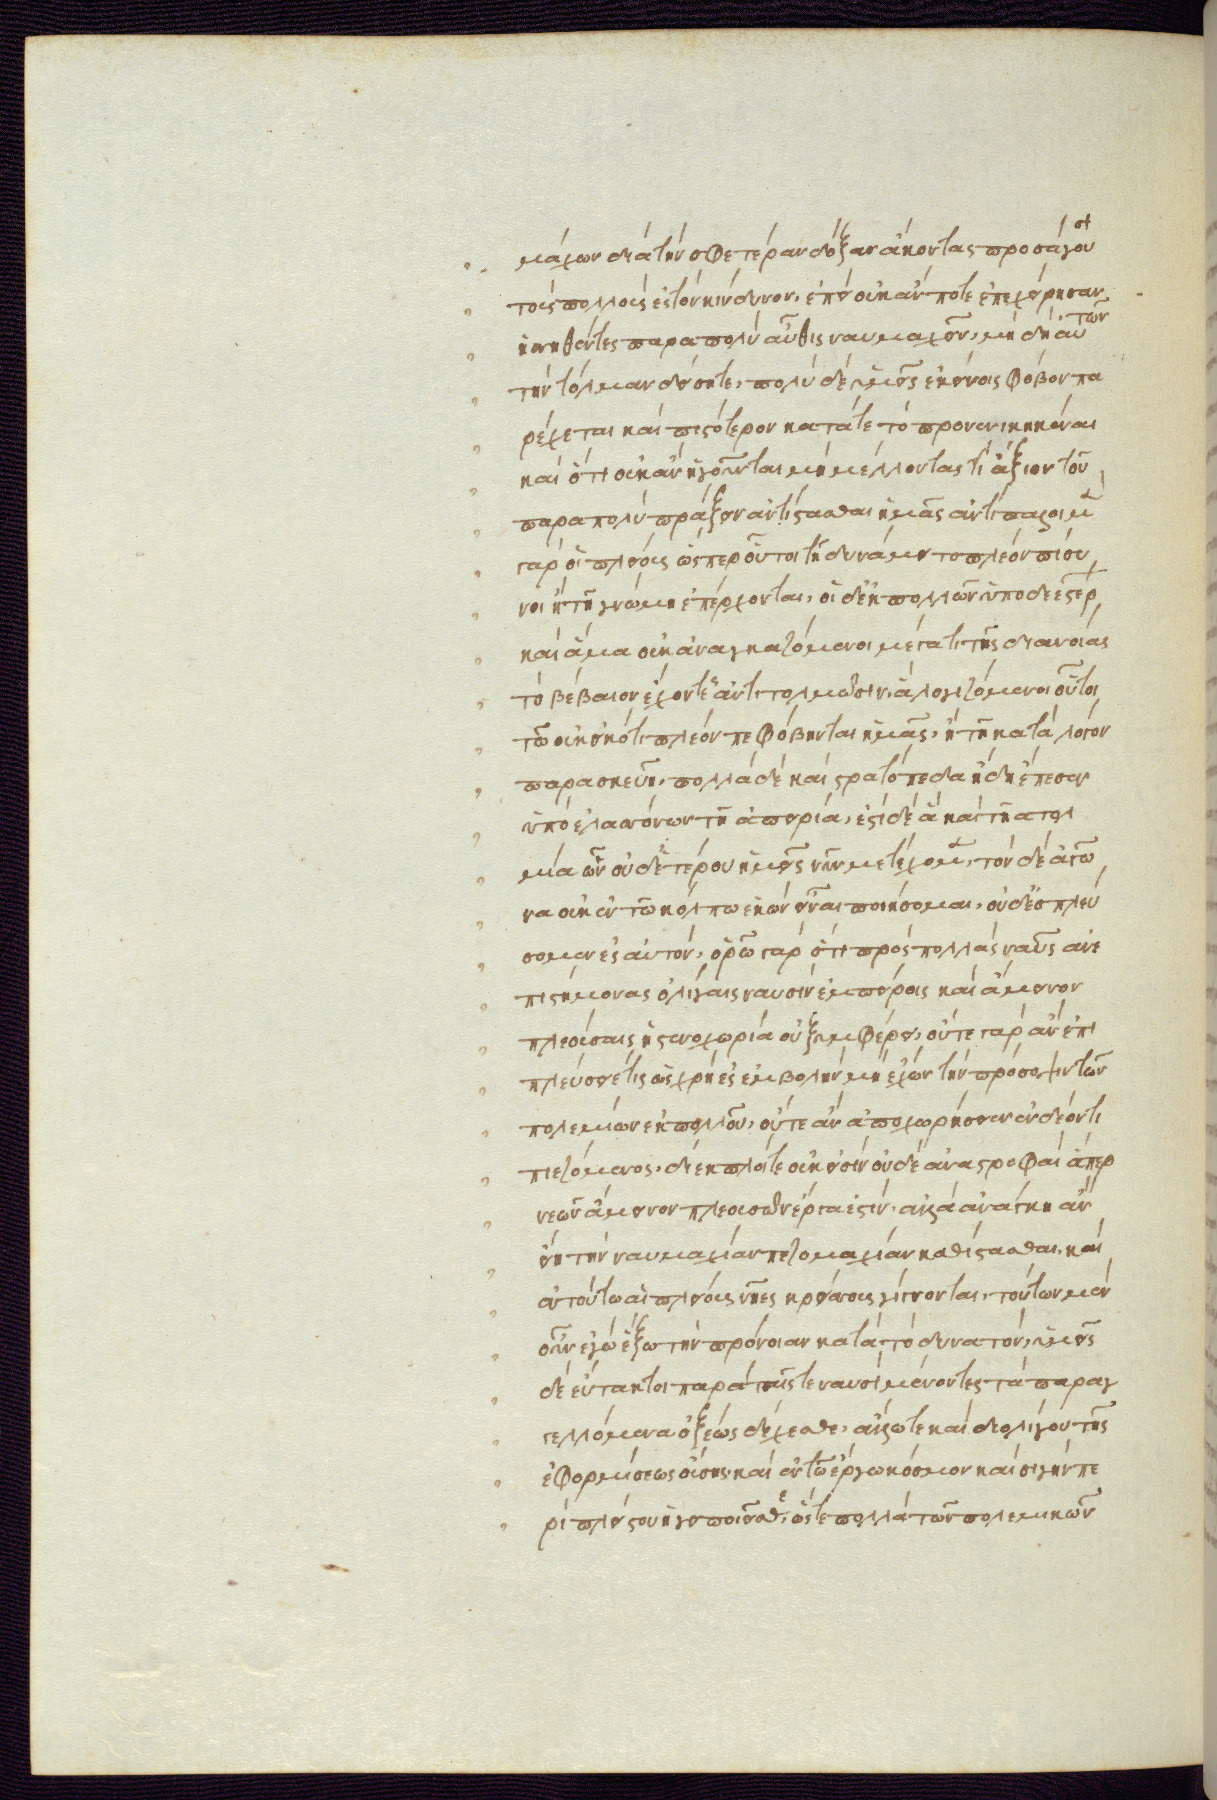 μάχων διὰ τὴν σφετέραν δόξαν ἄκοντας προσάγουσι
τοὺς πολλοὺς ἐς τὸν κίνδυνον, ἐπεὶ οὐκ ἄν ποτε ἐπεχείρησαν
ἡσσηθέντες παρὰ πολὺ αὖθις ναυμαχεῖν, μὴ δὴ αὐτῶν
τὴν τόλμαν δείσητε, πολὺ δὲ ὑμεῖς ἐκείνοις φόβον πα
ρέχεται καὶ πιστότερον κατά τε τὸ προνενικηκέναι
καὶ ὅτι οὐκ ἂν ἡγοῦνται μὴ μέλλοντάς τι ἄξιον τοῦ
παρὰ πολὺ πράξειν ἀντίστασθαι ἡμᾶς ἀντίπαλοι μὲν
γὰρ οἱ πλείους ὥσπερ οὗτοι τῇ δυνάμει τὸ πλέον πίσυ
νοι ἢ τῇ γνώμῃ ἐπέρχονται, οἱ δ' ἐκ πολλῶν ὑποδεεστέρων
καὶ ἅμα οὐκ ἀναγκαζόμενοι μέγα τι τῆς διανοίας
τὸ βέβαιον ἔχοντες ἀντιτολμῶσιν, ἃ λογιζόμενοι οὗτοι
τῷ οὐκ εἰκότι πλέον πεφόβηνται ἡμᾶς, ἢ τῇ κατὰ λόγον
παρασκευῇ, πολλὰ δὲ καὶ στρατόπεδα ἤδη ἔπεσεν
ὑπὸ ἐλασσόνων τῇ ἀπειρίᾳ, ἔστι δὲ ἃ καὶ τῇ ἀτολ
μίᾳ ὧν οὐδετέρου ἡμεῖς νῦν μετέχομεν, τὸν δὲ ἀγῶ
να οὐκ ἐν τῷ κόλπῳ ἑκὼν εἶναι ποιήσομαι, οὐδ' ἐσπλεύ
σομαι ἐς αὐτόν, ὁρῶ γὰρ ὅτι πρὸς πολλὰς ναῦς ἀνε
πιστήμονας ὀλίγαις ναυσὶν ἐμπείροις καὶ ἄμεινον
πλεούσαις ἡ στενοχωρία οὐ ξυμφέρει, οὔτε γὰρ ἂν ἐπι
πλεύσειέ τις ὡς χρὴ ἐς ἐμβολὴν μὴ ἔχων τὴν πρόσοψιν τῶν
πολεμίων ἐκ πολλοῦ, οὔτε ἂν ἀποχωρήσειεν ἐν δέοντι
πιεζόμενος, διέκπλοι τε οὐκ εἰσὶν οὐδὲ ἀναστροφαὶ ἅπερ
νεῶν ἄμεινον πλεουσῶν ἔργα ἐστίν, ἀλλὰ ἀνάγκη ἂν
εἴη τὴν ναυμαχίαν πεζομαχίαν καθίστασθαι, καὶ
ἐν τούτῳ αἱ πλείους νῆες κρείσσους γίγνονται, τούτων μὲν
οὖν ἐγὼ ἕξω τὴν πρόνοιαν κατὰ τὸ δυνατόν, ὑμεῖς
δὲ εὔτακτοι παρὰ ταῖς τε ναυσὶ μένοντες τὰ παραγ
γελλόμενα ὀξέως δέχεσθε, ἄλλως τε καὶ δι' ὀλίγου τῆς
ἐφορμίσεως οὔσης καὶ ἐν τῷ ἔργῳ κόσμον καὶ σιγὴν πε
ρὶ πλείστου ἡγεῖσθε, ὥστε πολλὰ τῶν πολεμικῶν